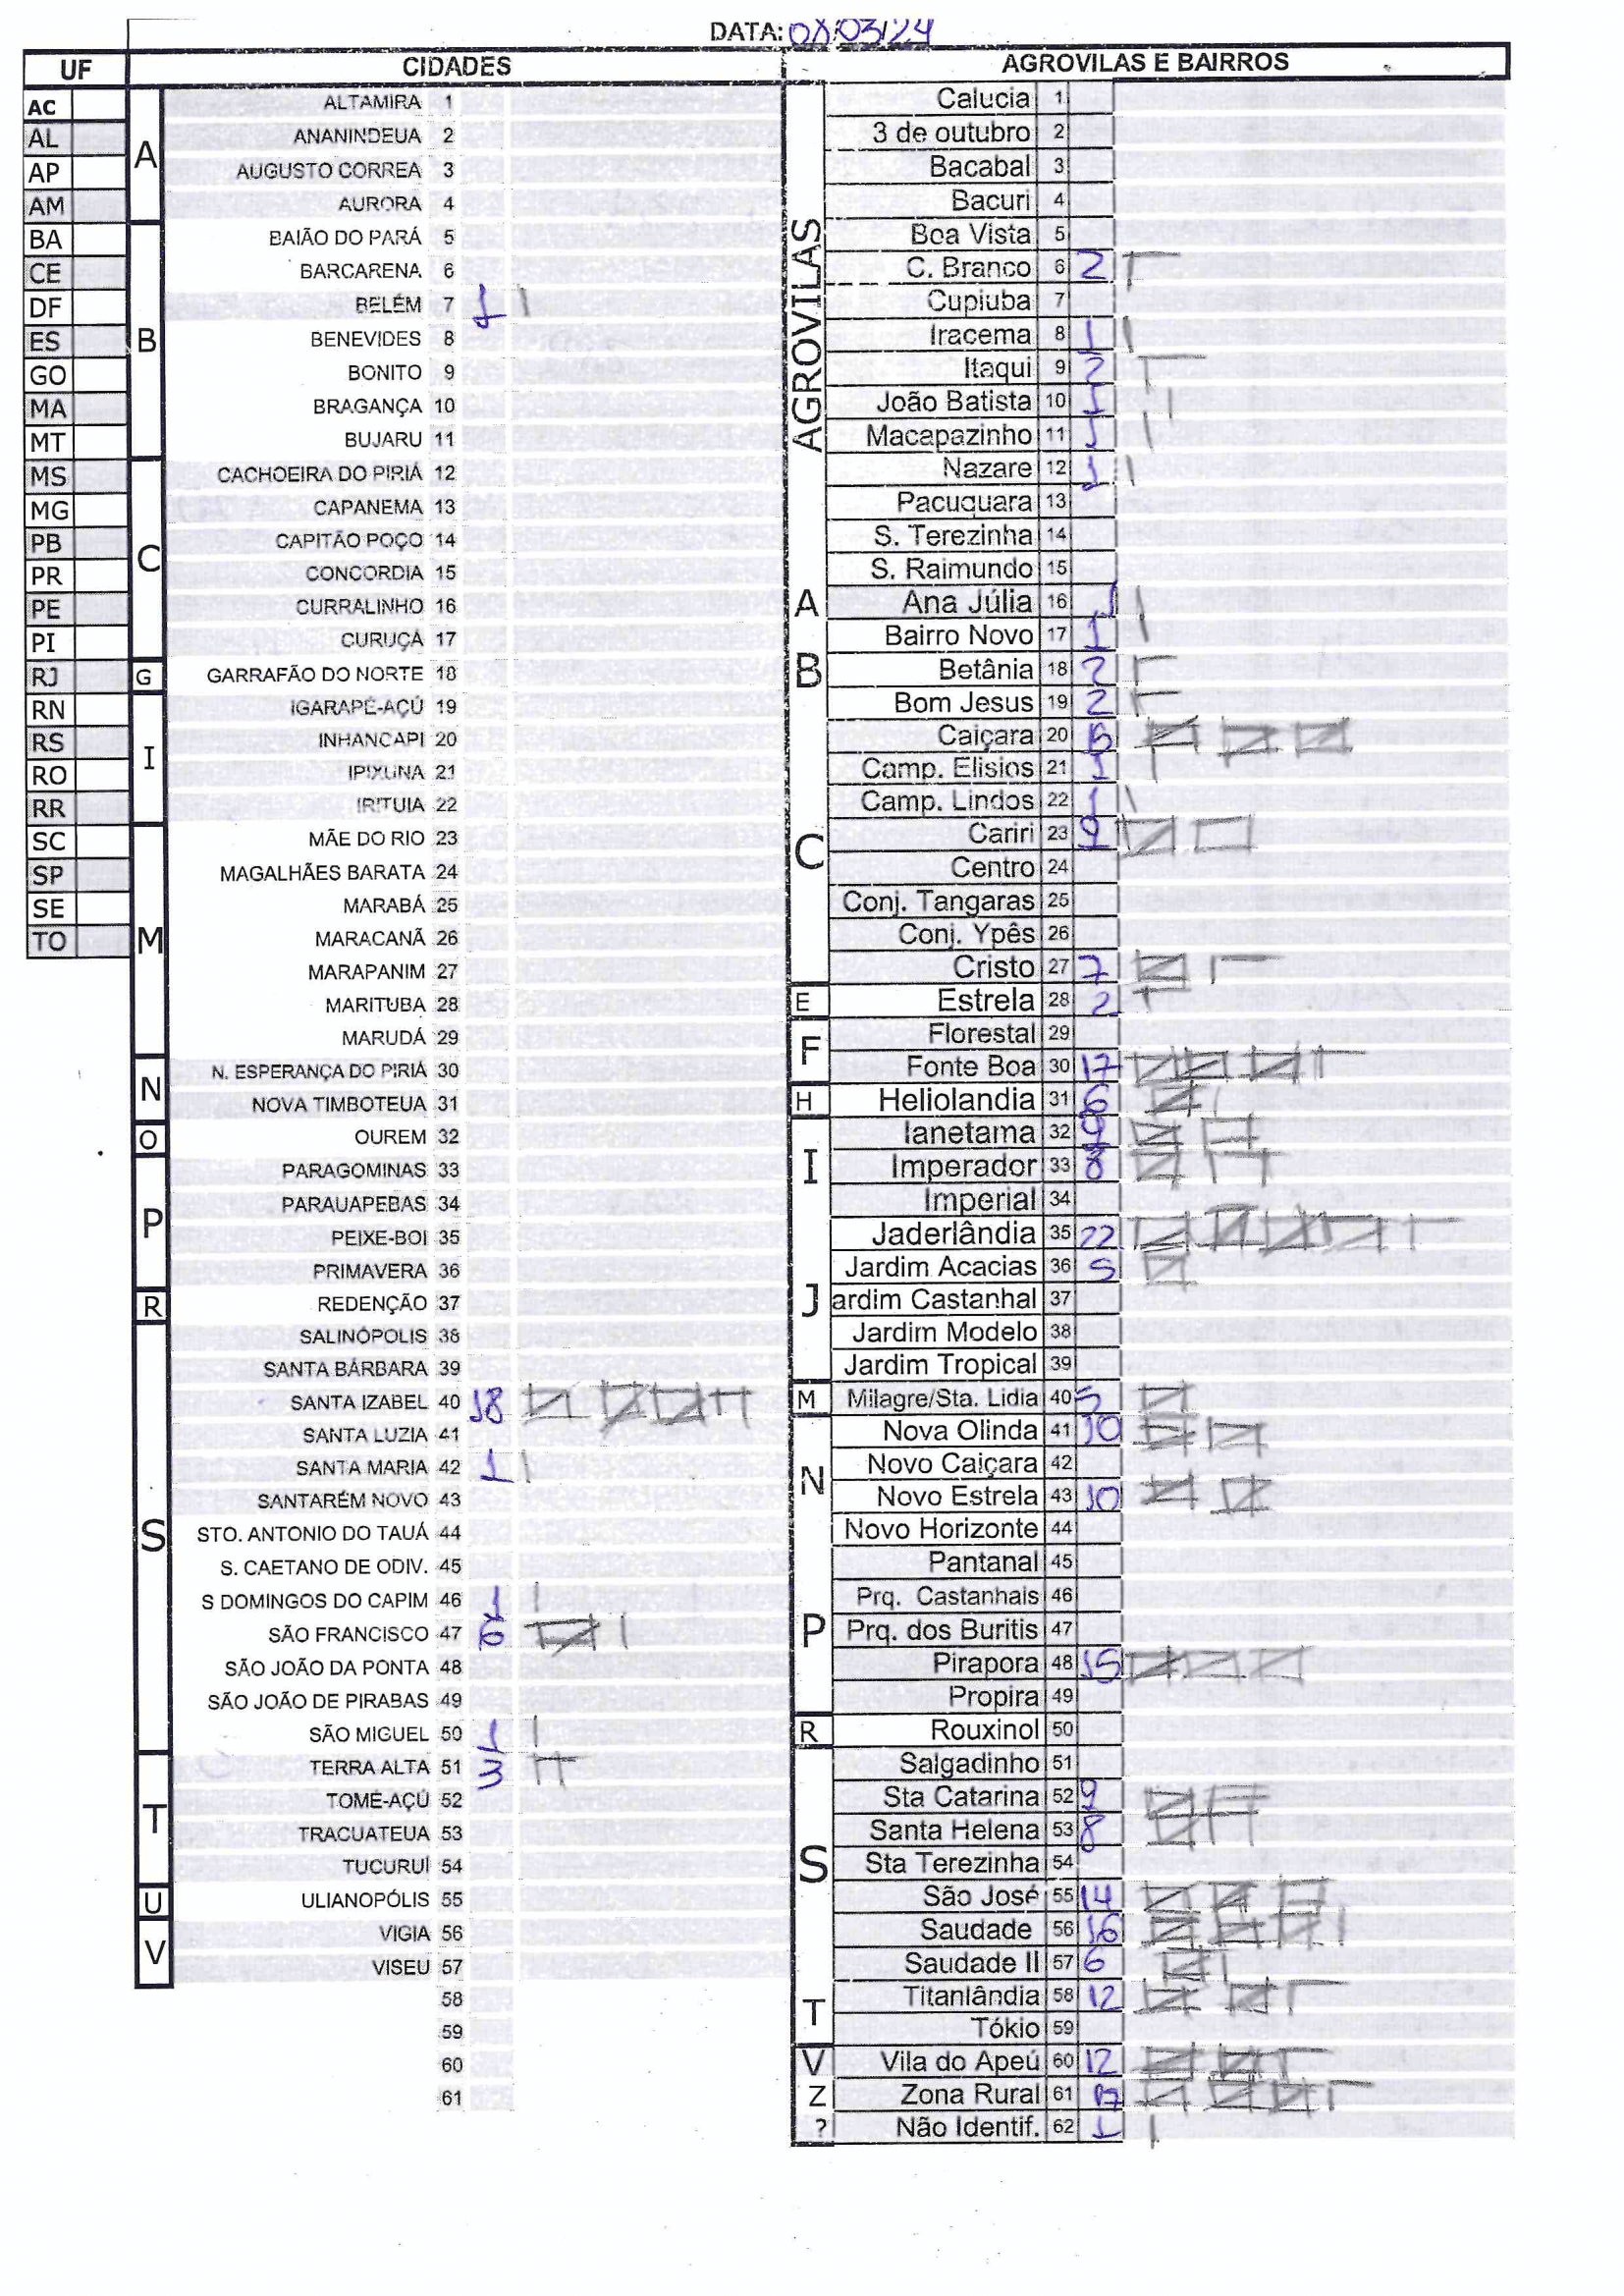 DATA: 08/03/24
UF CIDADES AGROVILAS E BAIRROS
AC
AL
AP
AM
BA
CE
DF
ES
GO
MA
MT
MS
MG
PB
PR
PE
PI
RJ
RN
RS
RO
RR
SC
SP
SE
TO
A
ALTAMIRA 1
ANANINDEUA 2
AUGUSTO CORREA 3
AURORA 4
B
BAIÃO DO PARÁ 5
BARCARENA 6
BELÉM 7 1
BENEVIDES 8
BONITO 9
BRAGANÇA 10
BUJARU 11
C
CACHOEIRA DO PIRIÁ 12
CAPANEMA 13
CAPITÃO POÇO 14
CONCORDIA 15
CURRALINHO 16
CURUÇA 17
G
GARRAFÃO DO NORTE 18
I
IGARAPÉ-AÇÚ 19
INHANGAPI 20
IPIXUNA 21
IRITUIA 22
M
MÃE DO RIO 23
MAGALHÃES BARATA 24
MARABÁ 25
MARACANÃ 26
MARAPANIM 27
MARITUBA 28
MARUDÁ 29
N
N. ESPERANÇA DO PIRIÁ 30
NOVA TIMBOTEUA 31
O
OUREM 32
P
PARAGOMINAS 33
PARAUAPEBAS 34
PEIXE-BOI 35
PRIMAVERA 36
R
REDENÇÃO 37
S
SALINÓPOLIS 38
SANTA BÁRBARA 39
SANTA IZABEL 40 18
SANTA LUZIA 41
SANTA MARIA 42 1
SANTARÉM NOVO 43
STO. ANTONIO DO TAUÁ 44
S. CAETANO DE ODIV. 45
S DOMINGOS DO CAPIM 46 1
SÃO FRANCISCO 47 6
SÃO JOÃO DA PONTA 48
SÃO JOÃO DE PIRABAS 49
SÃO MIGUEL 50 1
T
TERRA ALTA 51 3
TOMÉ-AÇÚ 52
TRACUATEUA 53
TUCURUÍ 54
U
ULIANOPÓLIS 55
V
VIGIA 56
VISEU 57
58
59
60
61
AGROVILAS
Calucia 1
3 de outubro 2
Bacabal 3
Bacuri 4
Boa Vista 5
C. Branco 6 2
Cupiuba 7
Iracema 8 1
Itaqui 9 2
João Batista 10 1
Macapazinho 11 1
Nazare 12 1
Pacuquara 13
S. Terezinha 14
S. Raimundo 15
A
Ana Júlia 16 1
Bairro Novo 17 1
B
Betânia 18 2
Bom Jesus 19 2
C
Caiçara 20 15
Camp. Elisios 21 1
Camp. Lindos 22 1
Cariri 23 9
Centro 24
Conj. Tangaras 25
Conj. Ypês 26
Cristo 27 7
E
Estrela 28 2
F
Florestal 29
Fonte Boa 30 17
H
Heliolandia 31 6
I
Ianetama 32 9
Imperador 33 8
Imperial 34
J
Jaderlândia 35 22
Jardim Acacias 36 5
ardim Castanhal 37
Jardim Modelo 38
Jardim Tropical 39
M
Milagre/Sta. Lidia 40 5
N
Nova Olinda 41 10
Novo Caiçara 42
Novo Estrela 43 10
Novo Horizonte 44
P
Pantanal 45
Prq. Castanhais 46
Prq. dos Buritis 47
Pirapora 48 15
Propira 49
R
Rouxinol 50
S
Salgadinho 51
Sta Catarina 52 9
Santa Helena 53 8
Sta Terezinha 54
São José 55 14
Saudade 56 16
Saudade II 57 6
T
Titanlândia 58 12
Tókio 59
V
Vila do Apeú 60 12
Z
Zona Rural 61 17
?
Não Identif. 62 1